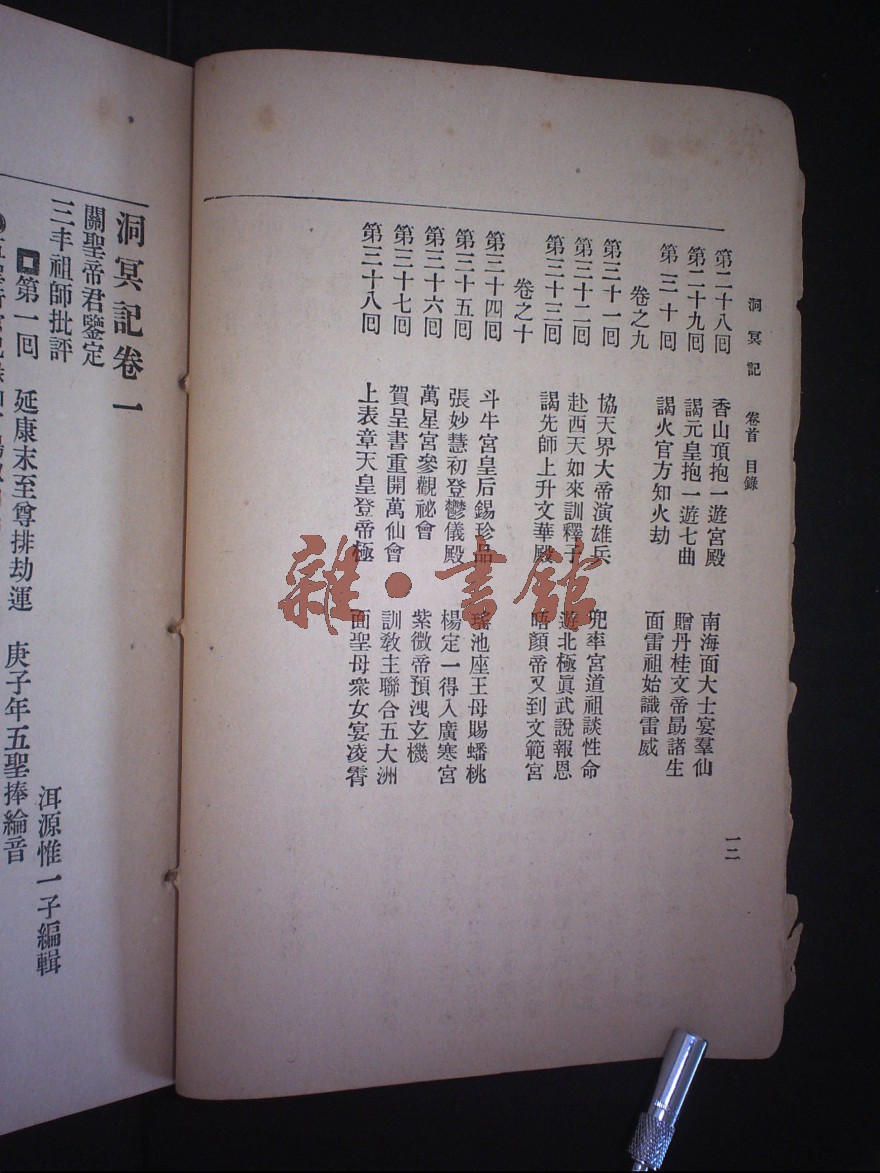 洞冥記　卷首　目錄
第二十八囘　香山頂抱一遊宮殿　南海面大士宴羣仙
第二十九囘　謁元皇抱一遊七曲　贈丹桂文帝勗諸生
第三十囘　謁火官方知火劫　面雷祖始識雷威
卷之九
第三十一囘　協天界大帝演雄兵　兜率宮道祖談性命
第三十二囘　赴西天如來訓釋子　遊北極眞武說報恩
第三十三囘　謁先師上升文華殿　晤顏帝又到文範宮
卷之十
第三十四囘　斗牛宮皇后錫珍品　瑤池座王母賜蟠桃
第三十五囘　張妙慧初登鬱儀殿　楊定一得入廣寒宮
第三十六囘　萬星宮參觀祕會　紫微帝預洩玄機
第三十七囘　賀呈書重開萬仙會　訓敎主聯合五大洲
第三十八囘　上表章天皇登帝極　面聖母衆女宴凌霄
一二
洞冥記卷一
關聖帝君鑒定
三丰祖師批評
洱源惟一子編輯
第一囘　延康末至尊排劫運　庚子年五聖捧綸音
雜·書館